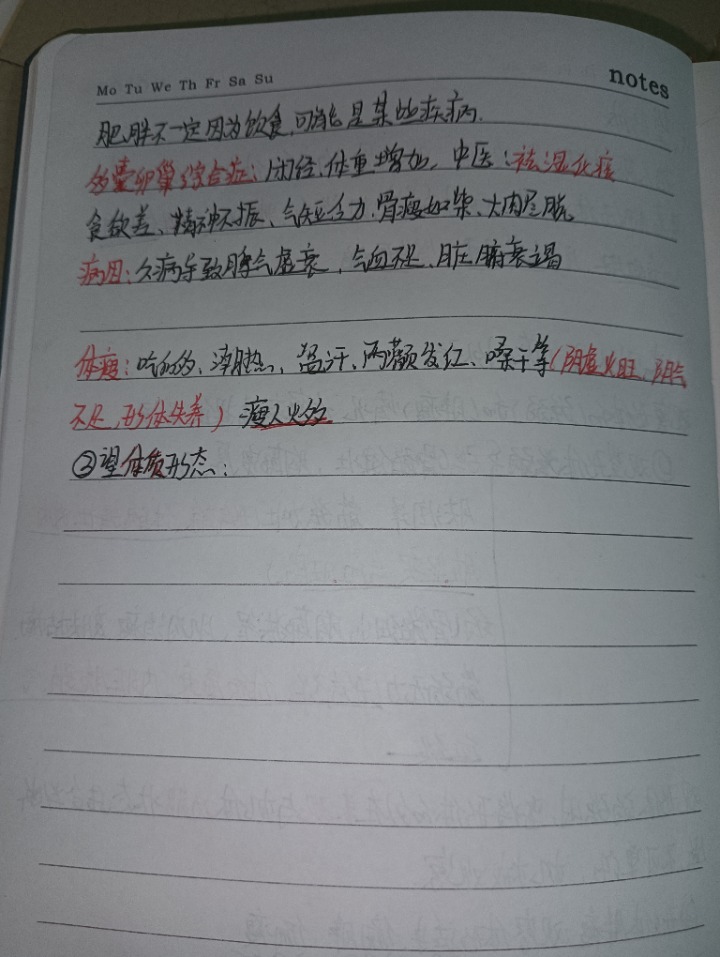 Mo Tu We Th Fr Sa Su
notes
肥胖不一定因为饮食,可能是某些疾病.
多囊卵巢综合症:闭经、体重增加, 中医:祛湿化痰
食欲差、精神不振、气短乏力、骨瘦如柴、大肉尽脱
病因:久病导致脾气虚衰,气血不足、脏腑衰竭
体瘦:吃的多、潮热、盗汗、两颧发红、嗓干等(阴虚火旺、阴气
不足,形体失养) 瘦人火多
②望体质形态: